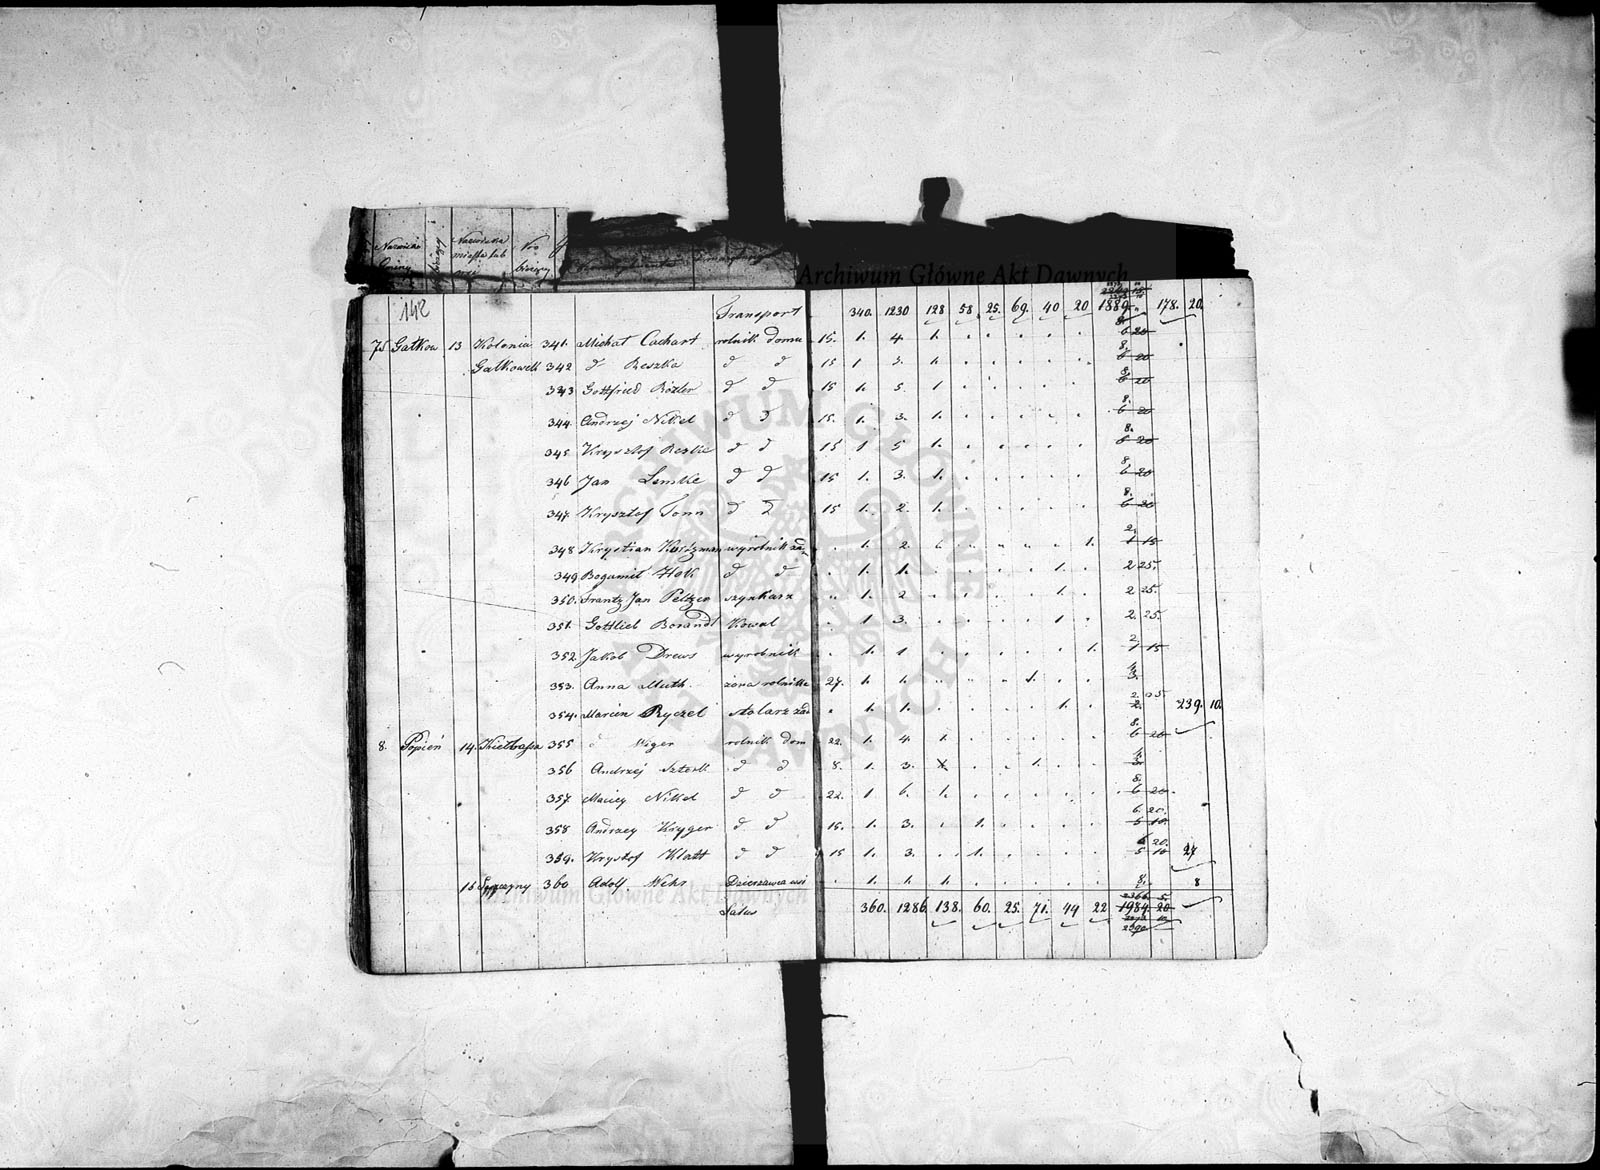 Nazwisko Nazwiska No
Gminy miasta lub bieżący
142 Transport 340. 1230 128 58 25. 69. 40 20 1889 178. 20.
75 Gałkow 13 Kolonia 341. Michał Cachart rolnik domu 15. 1. 4. 1. 8. 6 20
Gałkowek 342 d Reszka d d 15 1 3. 1. 8. 6 20
343 Gottfried Rozler d d 15 1. 5. 1 8. 6 20
344. Andrzej Nikel d d 15. 1. 3. 1. 8. 6 20
345. Krysztof Reslic d d 15 1 5 1. 8. 6 20
346 Jan Lemke d d 15 1. 3. 1. 8. 6 20
347. Krysztof Tonn d d 15 1. 2. 1. 8. 6 20
348 Krystian wyrobnik 1. 2. 1. 2. 1 15
349 Bogumił Hok d d 1. 1. 1. 2 25.
350. Frantz Jan Peltzer szynkarz 1. 2 1. 2 25.
351. Gottlieb Borandt Kowal 1 3. 1 2. 25.
352 Jakob Drews wyrobnik 1. 1 1. 2. 1 15
353. Anna Muth. żona rolnika 27. 1. 1. 1. 4. 3.
354. Marcin Ryczel stolarz 1. 1. 1. 2. 25 2. 239. 10.
8. Popień 14. Kiełbassa 355 d Wiger rolnik dom 22. 1. 4 1. 8. 6 20
356 Andrzej Szterk d d 8. 1. 3. 1. 4. 3.
357. Maciey Nikel d d 22. 1 6. 1. 8. 6 20.
358 Andrzey Kryger d d 15. 1. 3. 1. 6. 20. 5 10.
359. Krysztof Klatt d d 15 1. 3. 1. 6 20. 5 10 27
15 360 Adolf Wehr Dzierzawca wsi 1. 1. 1. 8. 8
Latus 360. 1286. 138. 60. 25. 71. 44 22 2366. 5. 1984. 20
2390
Archiwum Główne Akt Dawnych
Archiwum Główne Akt Dawnych
ARCHIWUM GŁÓWNE AKT DAWNYCH